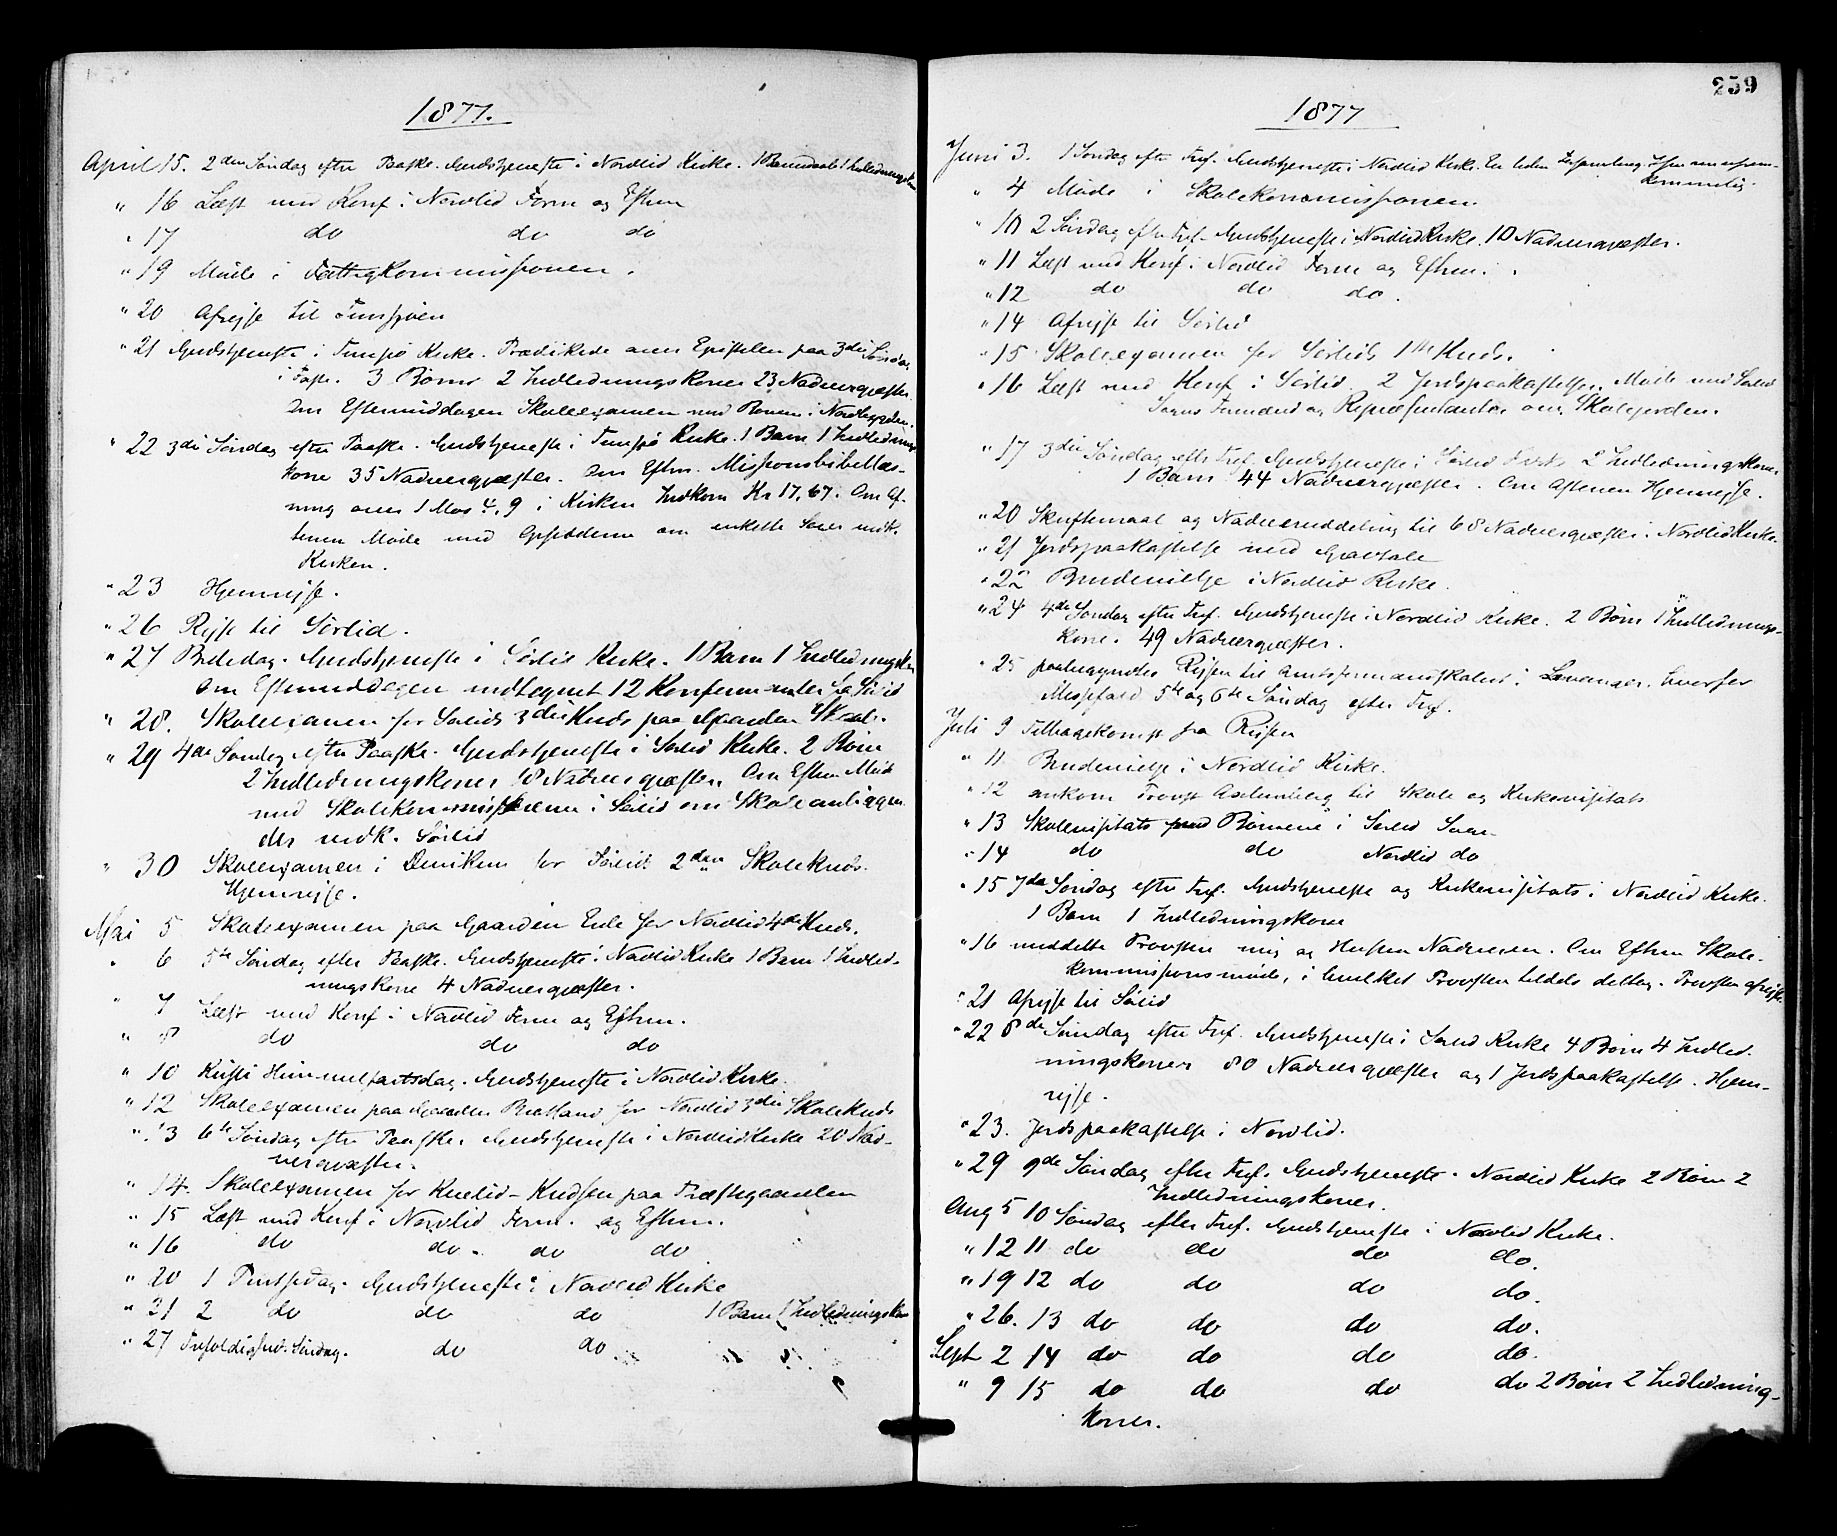 1877.
April 15. 2den Søndag efter Paaske. Gudstjeneste i Nordlid Kirke. 1 Barnedaab 1 Indledningskone
" 16 Læst med Konf. i Nordlid Form og Efterm
" 17 do do do
" 19 Møde i Fattigkommissionen.
" 20 Afrejse til Tunsjøen
" 21 Gudstjeneste i Tunsjø Kirke. Prædikede over Epistelen paa 3die Søndag
i Faste. 3 Børn 2 Indledningskoner 23 Nadvergjæster.
Om Eftermiddagen Skoleexamen med Børnene i Nordbygden.
" 22 3die Søndag efter Paaske. Gudstjeneste i Tunsjø Kirke. 1 Barn 1 Indlednings
kone 35 Nadvergjæster. Om Efterm. Missionsbibellæs-
ning over 1 Mos 4, 9 i Kirken Indkom Kr 17,67. Om Af-
tenen Møde med Opsidderne om enkelte Sager vedk.
Kirken.
" 23 Hjemrejse.
" 26 Rejse til Sørlid.
" 27 Bededag. Gudstjeneste i Sørlid Kirke. 1 Barn 1 Indledningskone
Om Eftermiddagen indtegnet 12 Konfirmanter fra Sørlid
" 28. Skoleexamen for Sørlids 3die Kreds paa Gaarden
" 29 4de Søndag efter Paaske. Gudstjeneste i Sørlid Kirke. 2 Børn
2 Indledningskoner 18 Nadvergjæster. Om Efterm Møde
med Skolekommissionen i Sørlid om Skoleanliggen
der vedk. Sørlid
" 30 Skoleexamen i Deviken for Sørlids 2den Skolekreds.
Hjemrejse.
Mai 5 Skoleexamen paa Gaarden for Nordlid 4de Kreds.
" 6 5te Søndag efter Paaske. Gudstjeneste i Nordlid Kirke 1 Barn 1 Indled-
ningskone 4 Nadvergjæster.
" 7 Læst med Konf. i Nordlid Form og Efterm.
" 8 do do do
" 10 Kristi Himmelfartsdag. Gudstjeneste i Nordlid Kirke.
" 12 Skoleexamen paa Gaarden for Nordlid 3die Skolekreds
" 13 6te Søndag efter Paaske. Gudstjeneste i Nordlid Kirke 20 Nad-
vergjæster.
" 14. Skoleexamen for Kvelid-Kredsen paa Præstegaarden
" 15 Læst med Konf. i Nordlid Form. og Efterm.
" 16 do do do do
" 20 1 Pintsedag. Gudstjeneste i Nordlid Kirke
" 21 2 do do do 1 Barn 1 Indledningskone
" 27 Trefoldigheds. Søndag. do do
259
1877
Juni 3. 1 Søndag efter Tref. Gudstjeneste i Nordlid Kirke. En liden Forsamling. Isen var
kommelig.
" 4 Møde i Skolekommissionen.
" 10 2 Søndag efter Tref. Gudstjeneste i Nordlid Kirke. 10 Nadvergjæster.
" 11 Læst med Konf. i Nordlid Form og Efterm.
" 12 do do do.
" 14 Afrejse til Sørlid
" 15 Skoleexamen for Sørlids 1ste Kreds.
" 16 Læst med Konf. i Sørlid. 2 Jordspaakastelser. Møde med Sørlid
Sogns Formænd og Repræsentanter om Skolejorden.
" 17 3die Søndag efter Tref. Gudstjeneste i Sørlid Kirke 2 Indledningskoner
1 Barn 44 Nadvergjæster. Om Aftenen Hjemrejse.
" 20 Skriftemaal og Nadveruddeling til 68 Nadvergjæster i Nordlid Kirke.
" 21 Jordspaakastelse med Gravtale
" 22 Brudevielse i Nordlid Kirke.
" 24 4de Søndag efter Tref. Gudstjeneste i Nordlid Kirke. 2 Børn 1 Indlednings-
kone. 49 Nadvergjæster.
" 25 paabegyndtes Rejsen til Amtsformandskabet i Levanger, hvorfor
Messefald 5te og 6te Søndag efter Tref.
Juli 9 Tilbagekomst fra Rejsen
" 11 Brudevielse i Nordlid Kirke.
" 12 ankom Provst til Skole og Kirkevisitats
" 13 Skolevisitats med Børnene i Sørlid Sogn
" 14 do do Nordlid do
" 15 7de Søndag efter Tref. Gudstjeneste og Kirkevisitats i Nordlid Kirke.
1 Barn 1 Indledningskone
" 16 meddelte Provsten mig og Hustru Nadveren. Om Efterm Skole-
kommissionsmøde, i hvilket Provsten tildels deltog. Provsten afrejste
" 21 Afrejse til Sørlid
" 22 8de Søndag efter Tref. Gudstjeneste i Sørlid Kirke 4 Børn 4 Indled.
ningskoner 80 Nadvergjæster og 1 Jordspaakastelse. Hjem-
rejse.
" 23. Jordspaakastelse i Nordlid.
" 29 9de Søndag efter Tref. Gudstjeneste i Nordlid Kirke 2 Børn 2
Indledningskoner.
Aug 5 10 Søndag efter Tref. Gudstjeneste i Nordlid Kirke.
" 12 11 do do do do.
" 19 12 do do do do.
" 26. 13 do do do do.
Sept 2 14 do do do do.
" 9 15 do do do do 2 Børn 2 Indlednings-
koner.